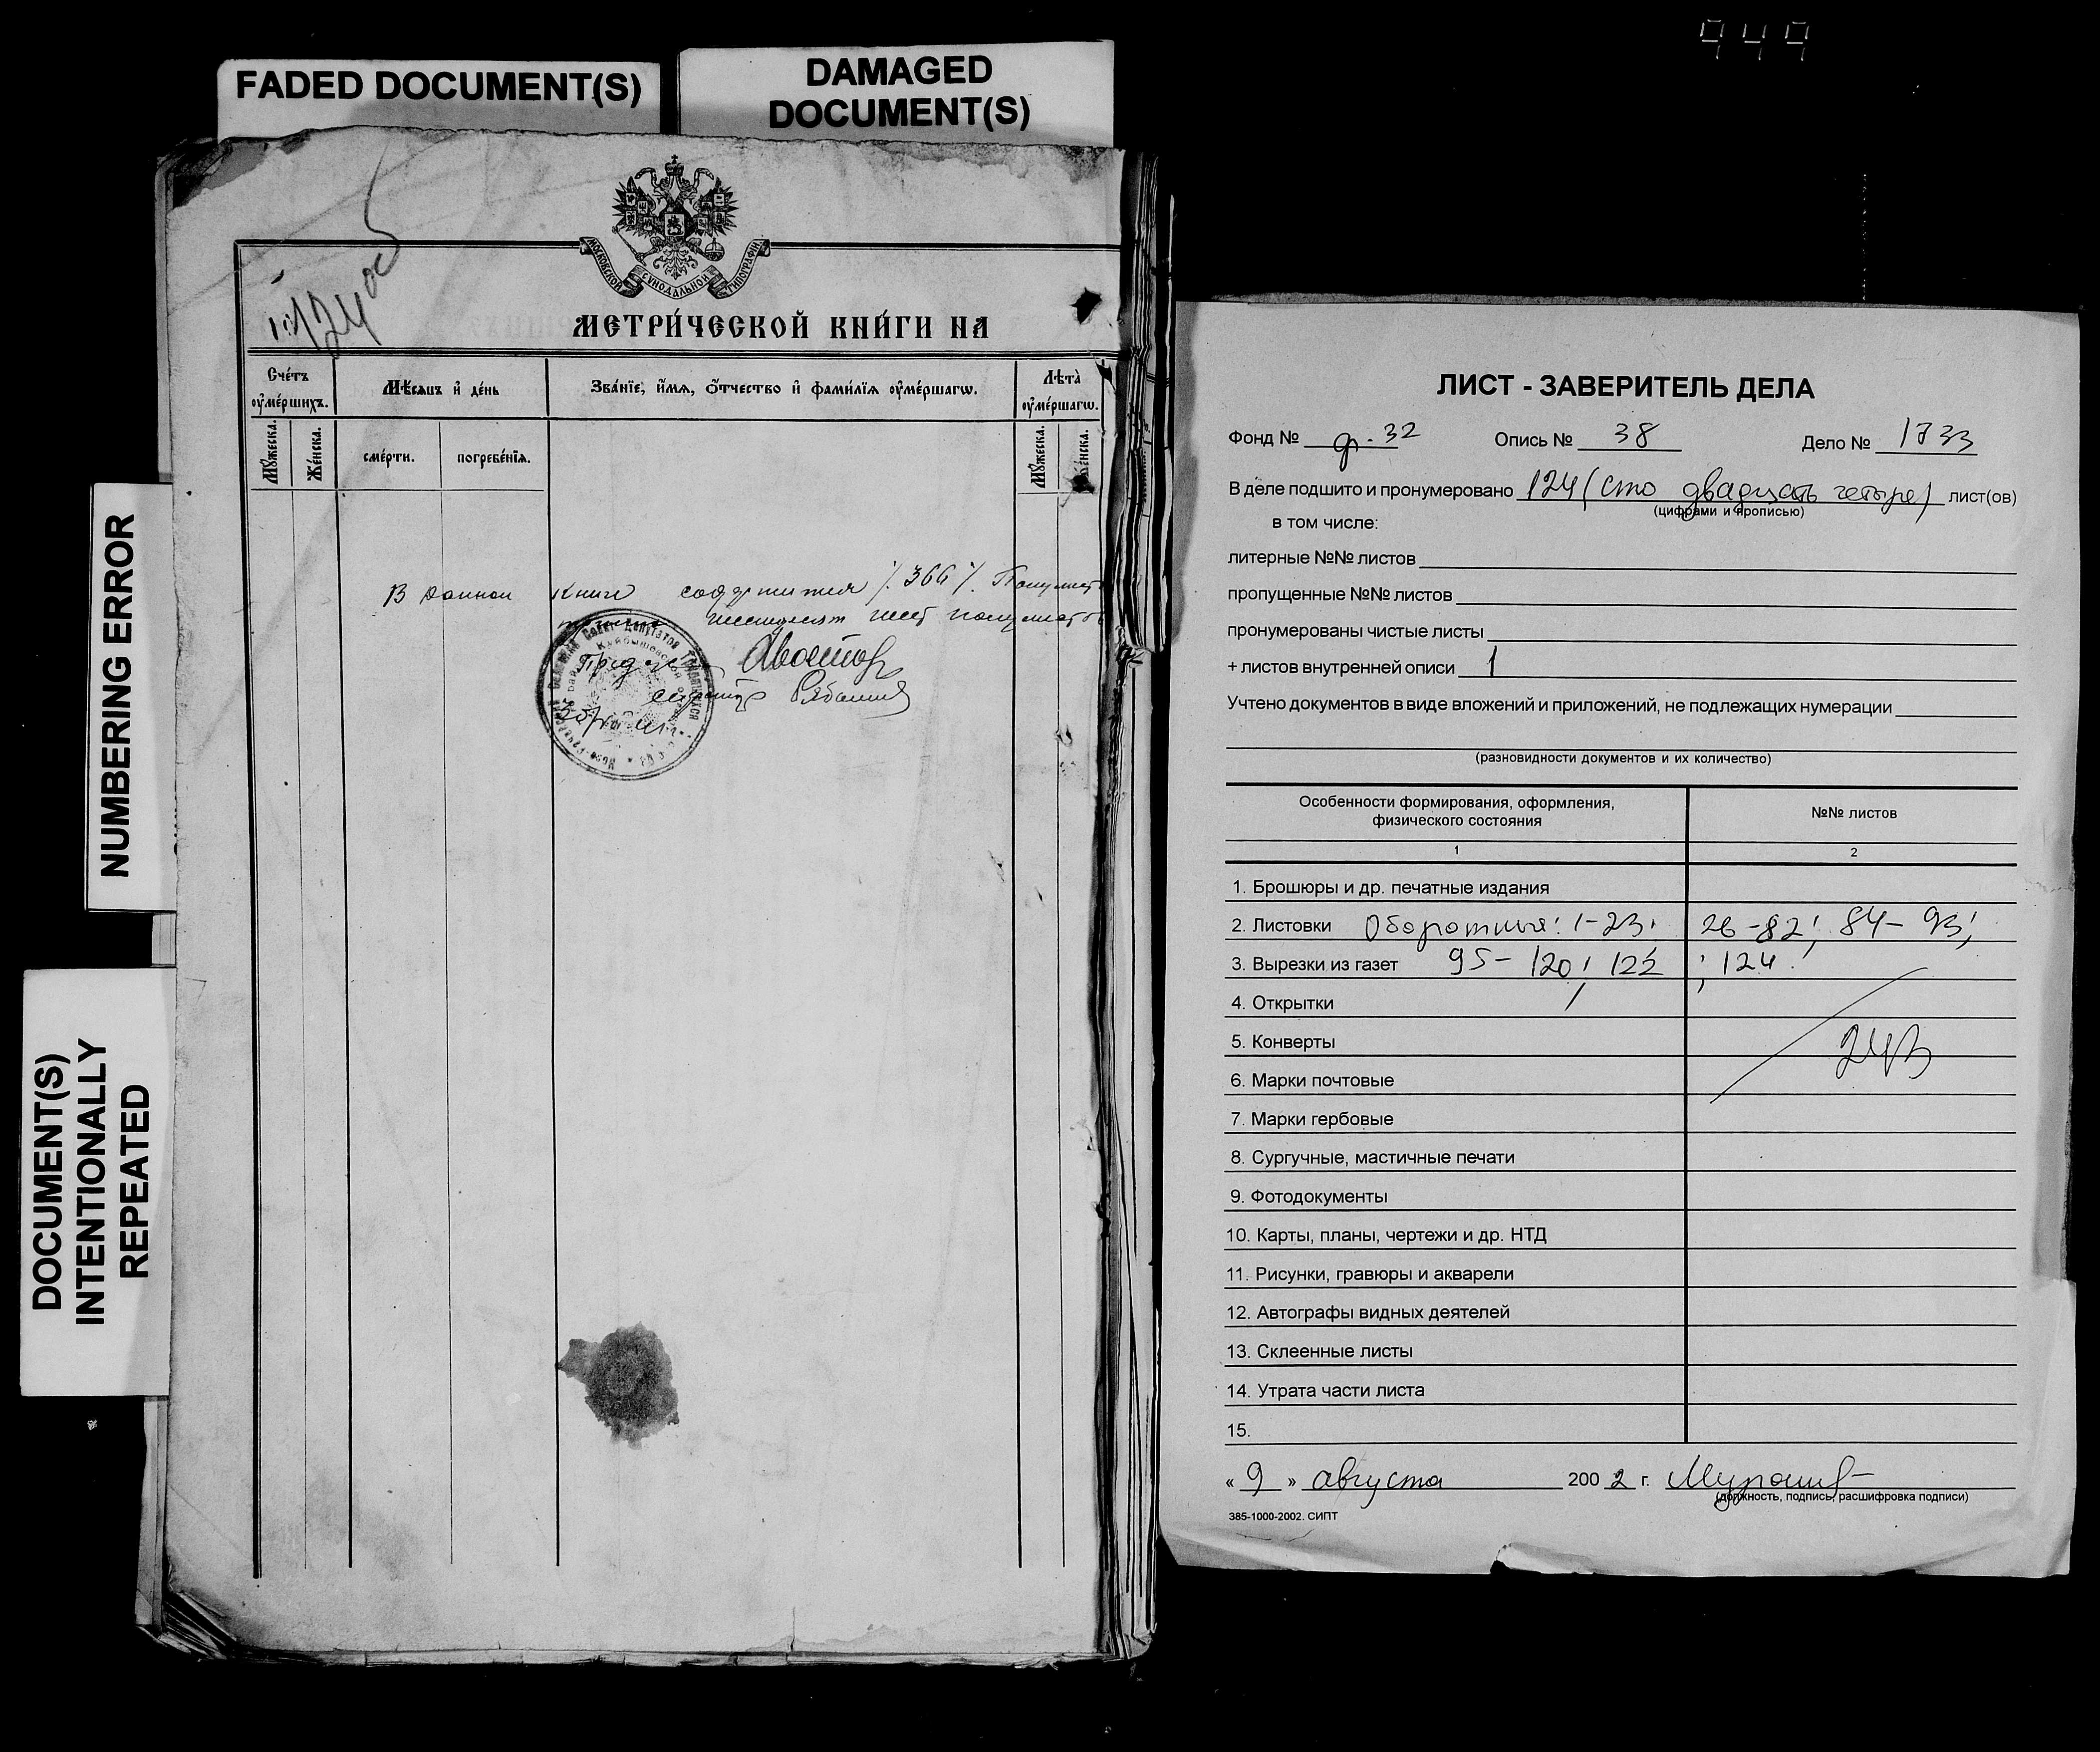 FADED DOCUMENT(S)
DAMAGED
DOCUMENT(S)
NUMBERING ERROR
DOCUMENT(S)
INTENTIONALLY
REPEATED
124 об
МОСКОВСКОЙ СУНОДАЛЬНОЙ ТИПОГРАФІИ
МЕТРИ́ЧЕСКОЙ КНИ́ГИ НА
Сче́тъ оу҆ме́ршихъ.
Мѣ́сяцъ и҆ де́нь
Зва́нїе, и҆́мѧ, ѻ҆́тчество и҆ фами́лїѧ оу҆ме́ршагѡ.
Лѣ́та оу҆ме́ршагѡ.
Мꙋ́жеска.
Же́нска.
сме́рти.
погребе́нїѧ.
Мꙋ́жеска.
Же́нска.
В данной книге содержится /. 366 /.
шестьдесят шест полулистов
секретарь
ЛИСТ - ЗАВЕРИТЕЛЬ ДЕЛА
Фонд № ф. 32 Опись № 38 Дело № 1733
В деле подшито и пронумеровано 124 (сто двадцать четыре) лист(ов)
(цифрами и прописью)
в том числе:
литерные №№ листов
пропущенные №№ листов
пронумерованы чистые листы
+ листов внутренней описи 1
Учтено документов в виде вложений и приложений, не подлежащих нумерации
(разновидности документов и их количество)
Особенности формирования, оформления,
физического состояния
№№ листов
1 2
1. Брошюры и др. печатные издания
2. Листовки Оборотные: 1-23; 26-82; 84-93;
3. Вырезки из газет 95-120; 122; 124.
4. Открытки
5. Конверты 243
6. Марки почтовые
7. Марки гербовые
8. Сургучные, мастичные печати
9. Фотодокументы
10. Карты, планы, чертежи и др. НТД
11. Рисунки, гравюры и акварели
12. Автографы видных деятелей
13. Склеенные листы
14. Утрата части листа
15.
« 9 » августа 2002 г.
(должность, подпись, расшифровка подписи)
385-1000-2002. СИПТ